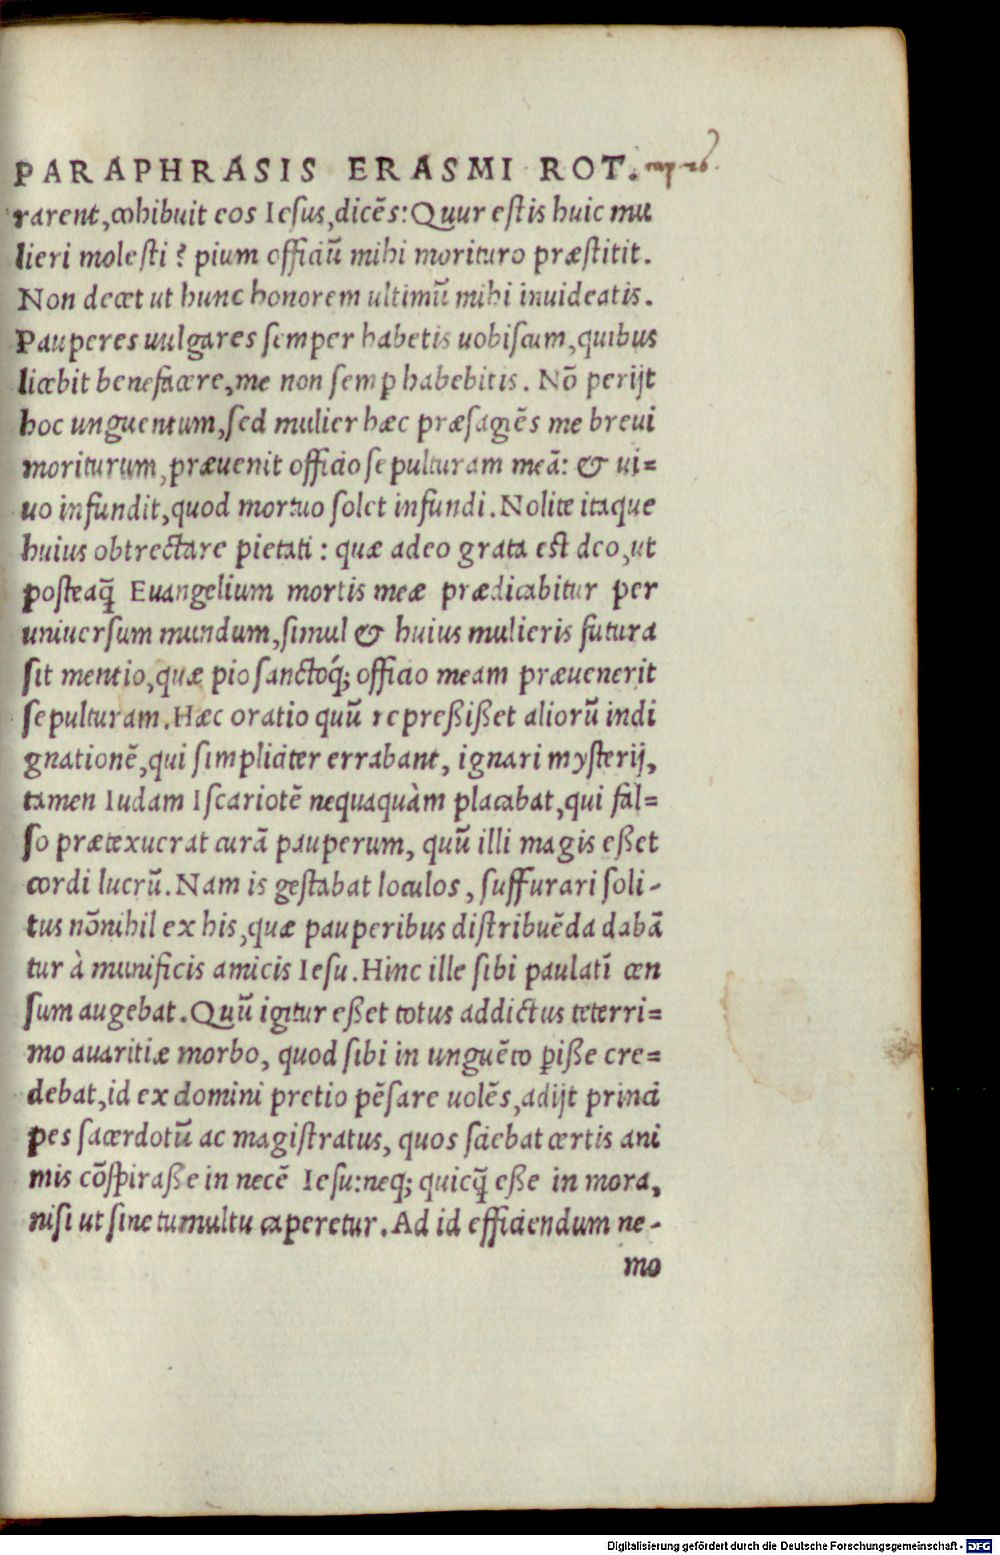 PARAPHRASIS ERASMI ROT. cap. 26.
rarent, cohibuit eos Iesus, dicẽs: Quur estis huic mu
lieri molesti? pium officiũ mihi morituro præstitit.
Non decet ut hunc honorem ultimũ mihi inuideatis.
Pauperes uulgares semper habetis uobiscum, quibus
licebit benefacere, me non semꝑ habebitis. Nõ perijt
hoc unguentum, sed mulier hæc præsagiẽs me breui
moriturum, præuenit officio sepulturam meã: & ui=
uo infundit, quod mortuo solet infundi. Nolite itaque
huius obtrectare pietati: quæ adeo grata est deo, ut
posteaq̃ Euangelium mortis meæ prædicabitur per
uniuersum mundum, simul & huius mulieris futura
sit mentio, quæ pio sanctoq́; officio meam præuenerit
sepulturam. Hæc oratio quũ repreßißet aliorũ indi
gnationẽ, qui simpliciter errabant, ignari mysterij,
tamen Iudam Iscariotẽ nequaquàm placabat, qui fal=
so prætexuerat curã pauperum, quũ illi magis eßet
cordi lucrũ. Nam is gestabat loculos, suffurari soli-
tus nõnihil ex his, quæ pauperibus distribuẽda dabã
tur à munificis amicis Iesu. Hinc ille sibi paulatĩ cen
sum augebat. Quũ igitur eßet totus addictus teterri=
mo auaritiæ morbo, quod sibi in unguẽto ꝑiße cre=
debat, id ex domini pretio pẽsare uolẽs, adijt princi
pes sacerdotũ ac magistratus, quos sciebat certis ani
mis cõspiraße in necẽ Iesu: neq; quicq̃ eße in mora,
nisi ut sine tumultu caperetur. Ad id efficiendum ne-
mo
Digitalisierung gefördert durch die Deutsche Forschungsgemeinschaft - DFG